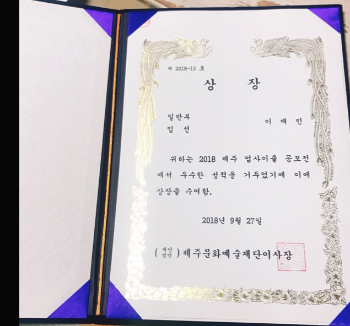 제 2018-13 호
상 장
일반부
입선
이 재 민
귀하는 2018 제주 업사이클 공모전
에서 우수한 성적을 거두었기에 이에
상장을 수여함.
2018년 9월 27일
( 재단법인 ) 제주문화예술재단이사장